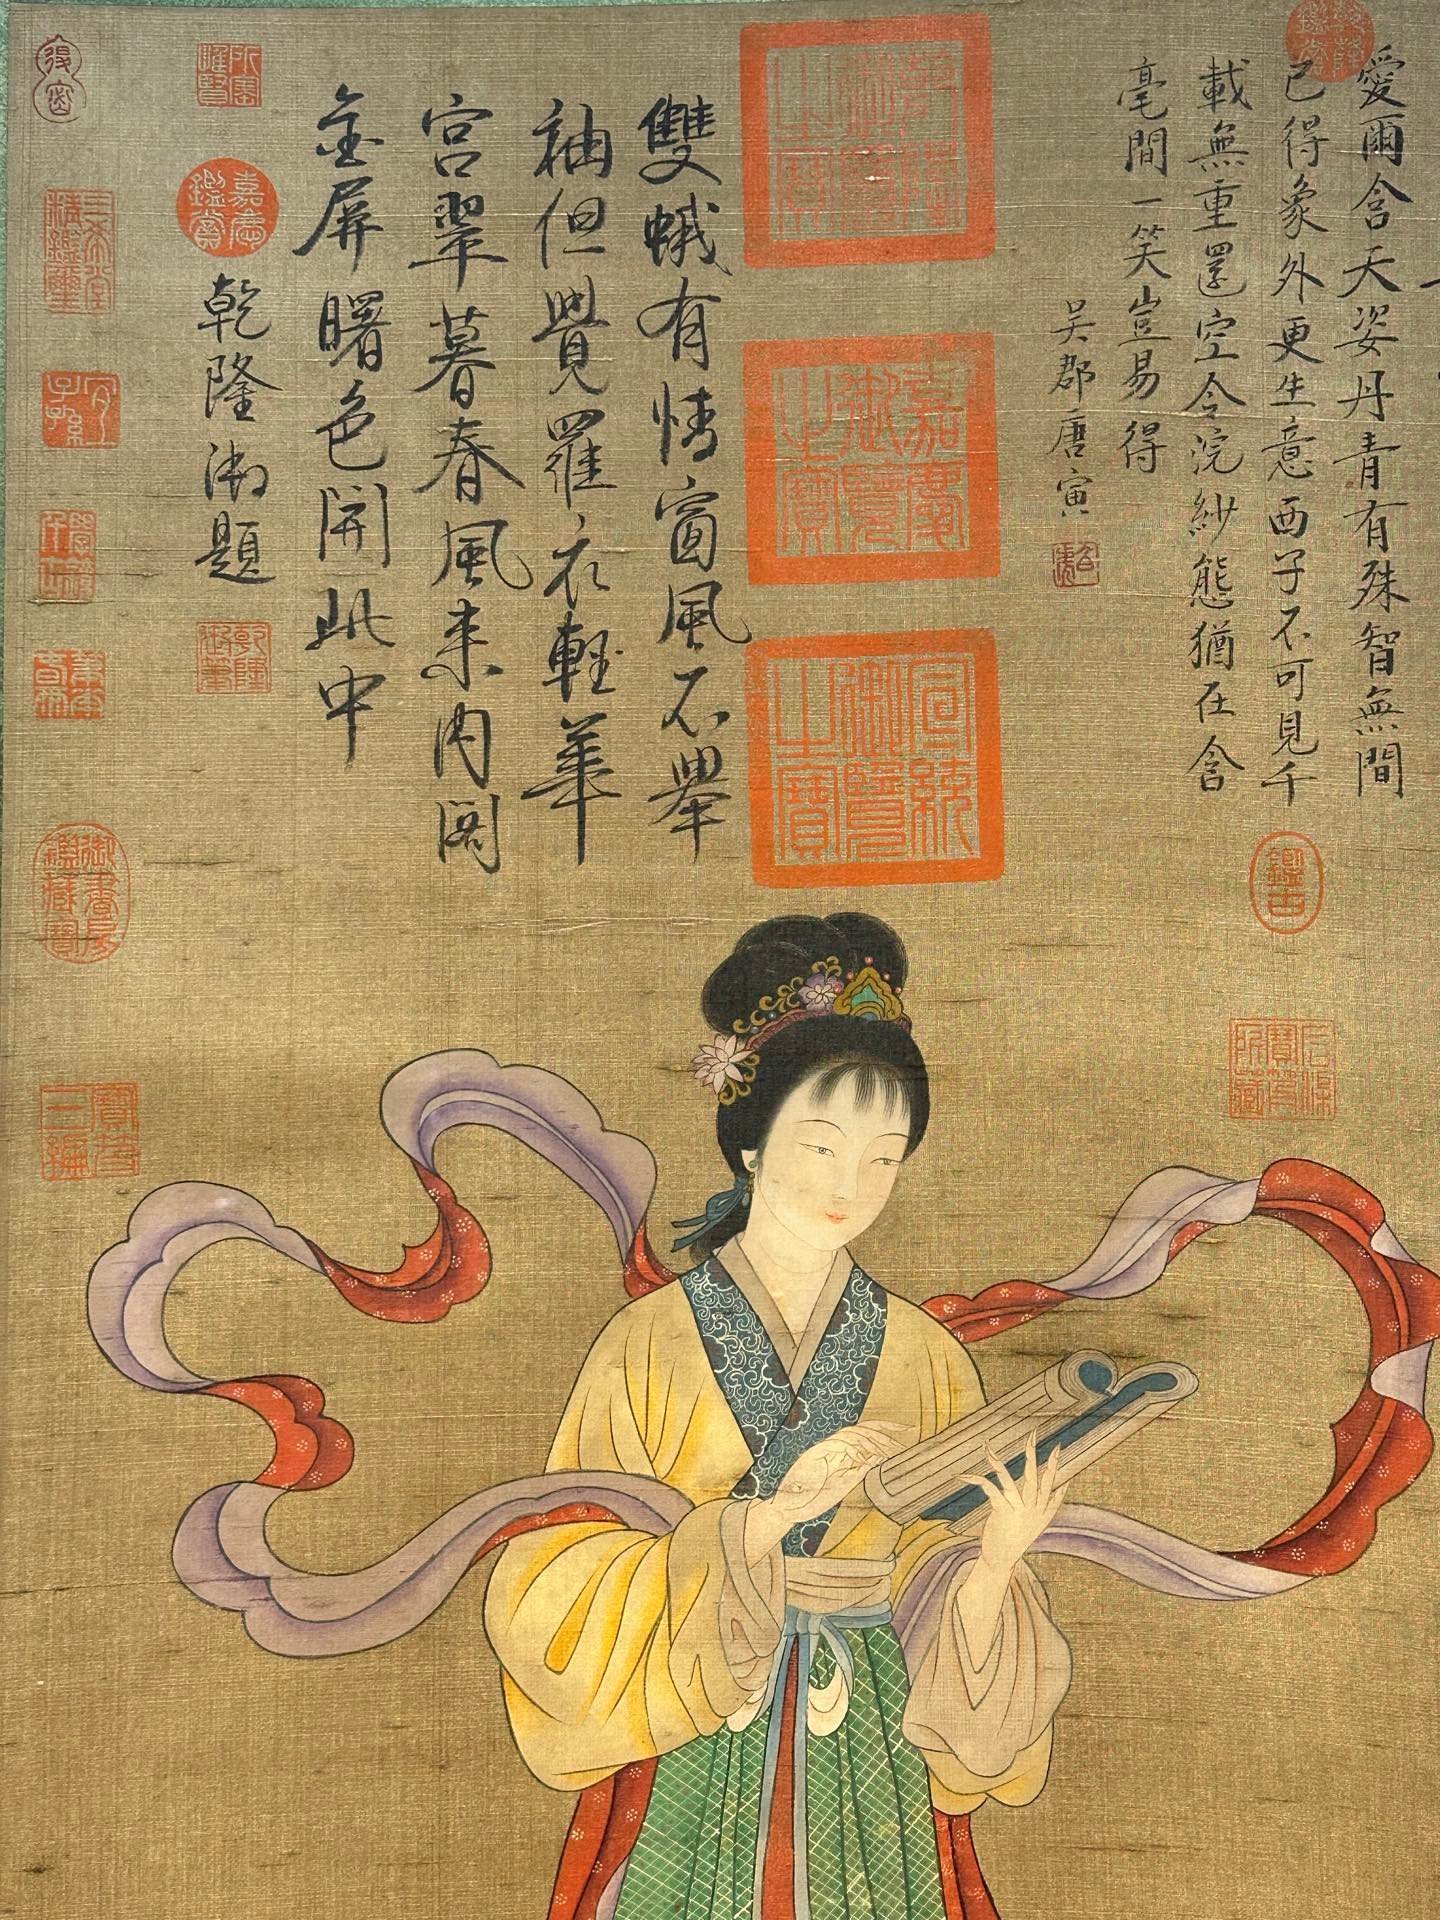 愛爾含天姿丹青有殊智無間
已得象外更生意西子不可見千
載無重還空令浣紗態猶在含
毫間一笑豈易得
吳郡唐寅
乾隆鑑賞
嘉慶御覽之寶
宣統御覽之寶
雙蛾有情窗風不舉
袖但覺羅衣輕華
宮翠暮春風来内閣
金屏曙色開此中
乾隆御題
乾隆御筆
嘉慶鑑賞
三希堂精鑑璽
宜子孫
御書房鑑藏寶